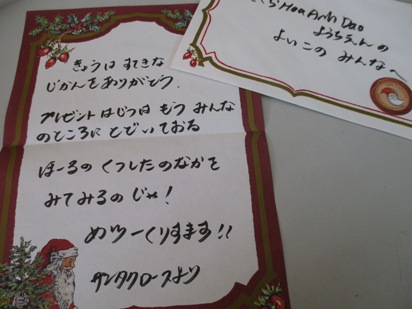 きょうは すてきな
じかんをありがとう.
プレゼントはじつは もう みんな
のところに とどいておる
ほーるの くつしたのなかを
みてみるのじゃ!
めりーくりすます!!
サンタクロースより
くらHoa Anh Dao
ようちえんの
よいこの みんなへ